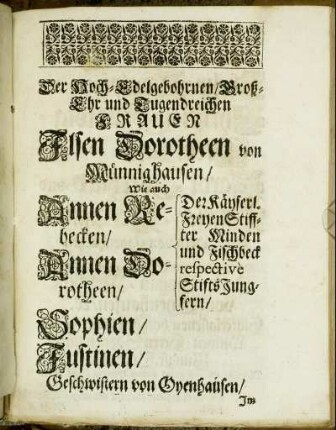 Der Hoch-Edelgebohrnen/Groß-
Ehr und Tugendreichen
FRAUEN
Ilsen Dorotheen von
Münnighausen/
Wie auch
Annen Re-
becken/
Annen Do-
rotheen/
Der Käyserl.
Freyen Stiff-
ter Minden
und Fischbeck
respective
Stifts Jung-
fern/
Sophien/
Justinen/
Geschwistern von Oyenhausen/
Im